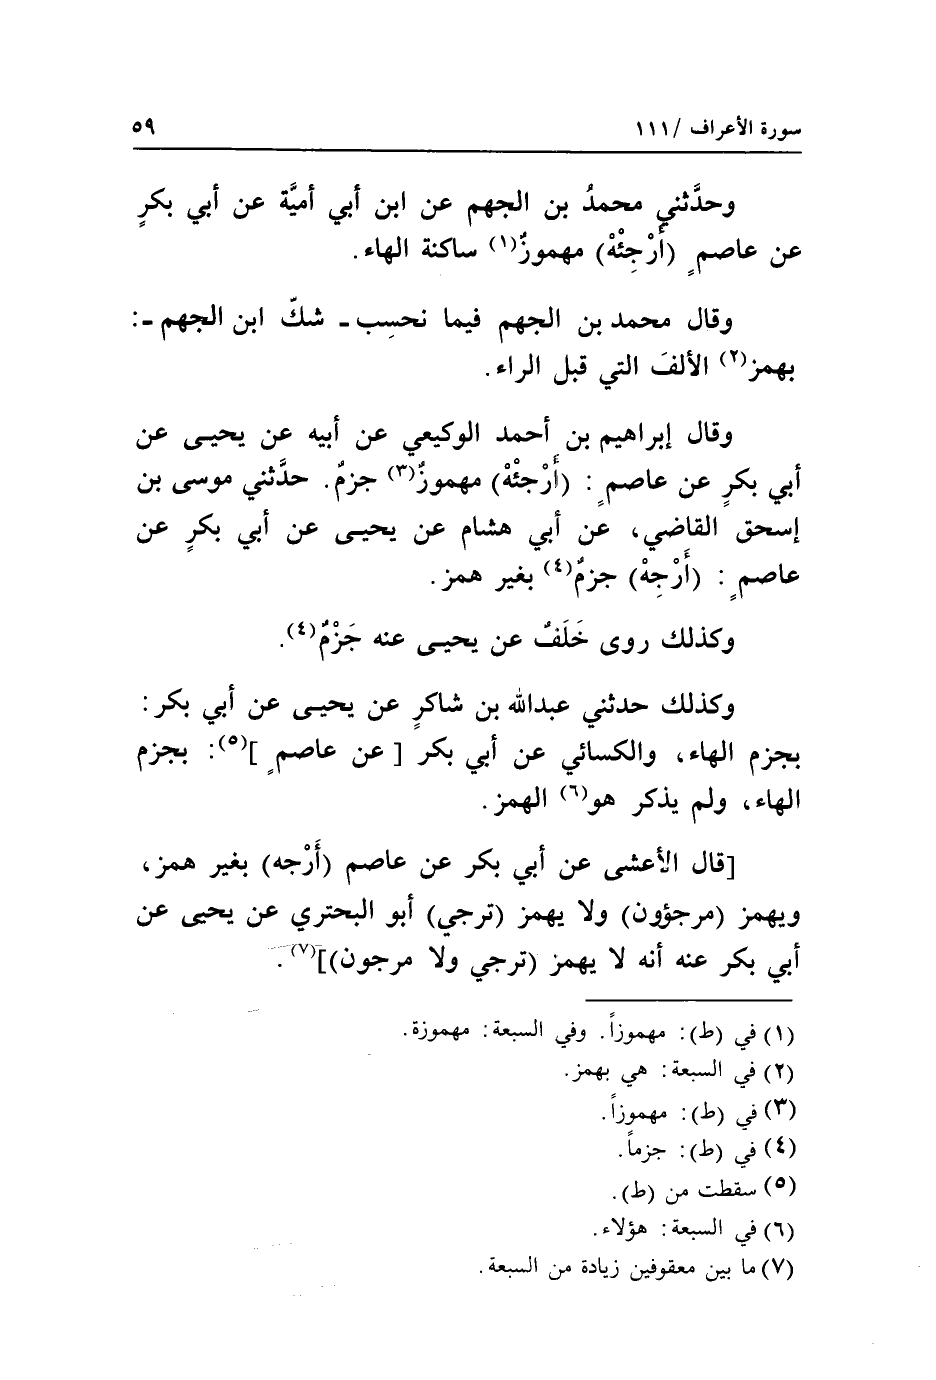 سورة الأعراف / ١١١ ٥٩
وحدَّثني محمدُ بن الجهم عن ابن أبي أميَّة عن أبي بكرٍ
عن عاصمٍ (أَرْجِئْهْ) مهموزٌ(١) ساكنة الهاء.
وقال محمد بن الجهم فيما نحسِب ـ شكّ ابن الجهم ـ:
بهمز(٢) الألفَ التي قبل الراء.
وقال إبراهيم بن أحمد الوكيعي عن أبيه عن يحيـى عن
أبي بكرٍ عن عاصمٍ : (أَرْجئْهْ) مهموزٌ(٣) جزمٌ. حدَّثني موسى بن
إسحق القاضي، عن أبي هشام عن يحيـى عن أبي بكرٍ عن
عاصمٍ : (أَرْجِهْ) جزمٌ(٤) بغير همز.
وكذلك روى خَلَفٌ عن يحيـى عنه جَزْمٌ(٤).
وكذلك حدثني عبدالله بن شاكرٍ عن يحيـى عن أبي بكر:
بجزم الهاء، والكسائي عن أبي بكر [ عن عاصمٍ ](٥): بجزم
الهاء، ولم يذكر هو(٦) الهمز.
[قال الأعشى عن أبي بكر عن عاصم (أَرْجه) بغير همز،
ويهمز (مرجؤون) ولا يهمز (ترجي) أبو البحتري عن يحيى عن
أبي بكر عنه أنه لا يهمز (ترجي ولا مرجون)](٧).
(١) في (ط): مهموزاً. وفي السبعة: مهموزة.
(٢) في السبعة: هي بهمز.
(٣) في (ط): مهموزاً.
(٤) في (ط): جزماً.
(٥) سقطت من (ط).
(٦) في السبعة: هؤلاء.
(٧) ما بين معقوفين زيادة من السبعة.